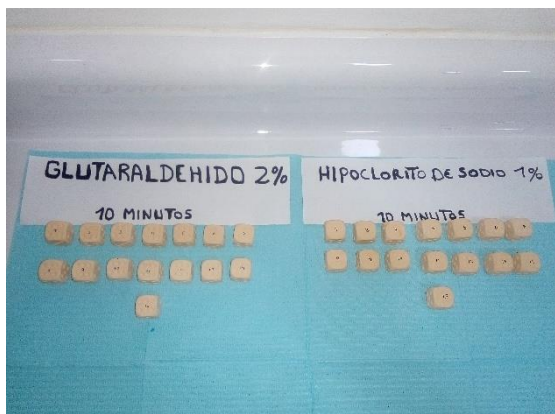 GLUTARALDEHIDO 2%
10 MINUTOS
HIPOCLORITO DE SODIO 1%
10 MINUTOS